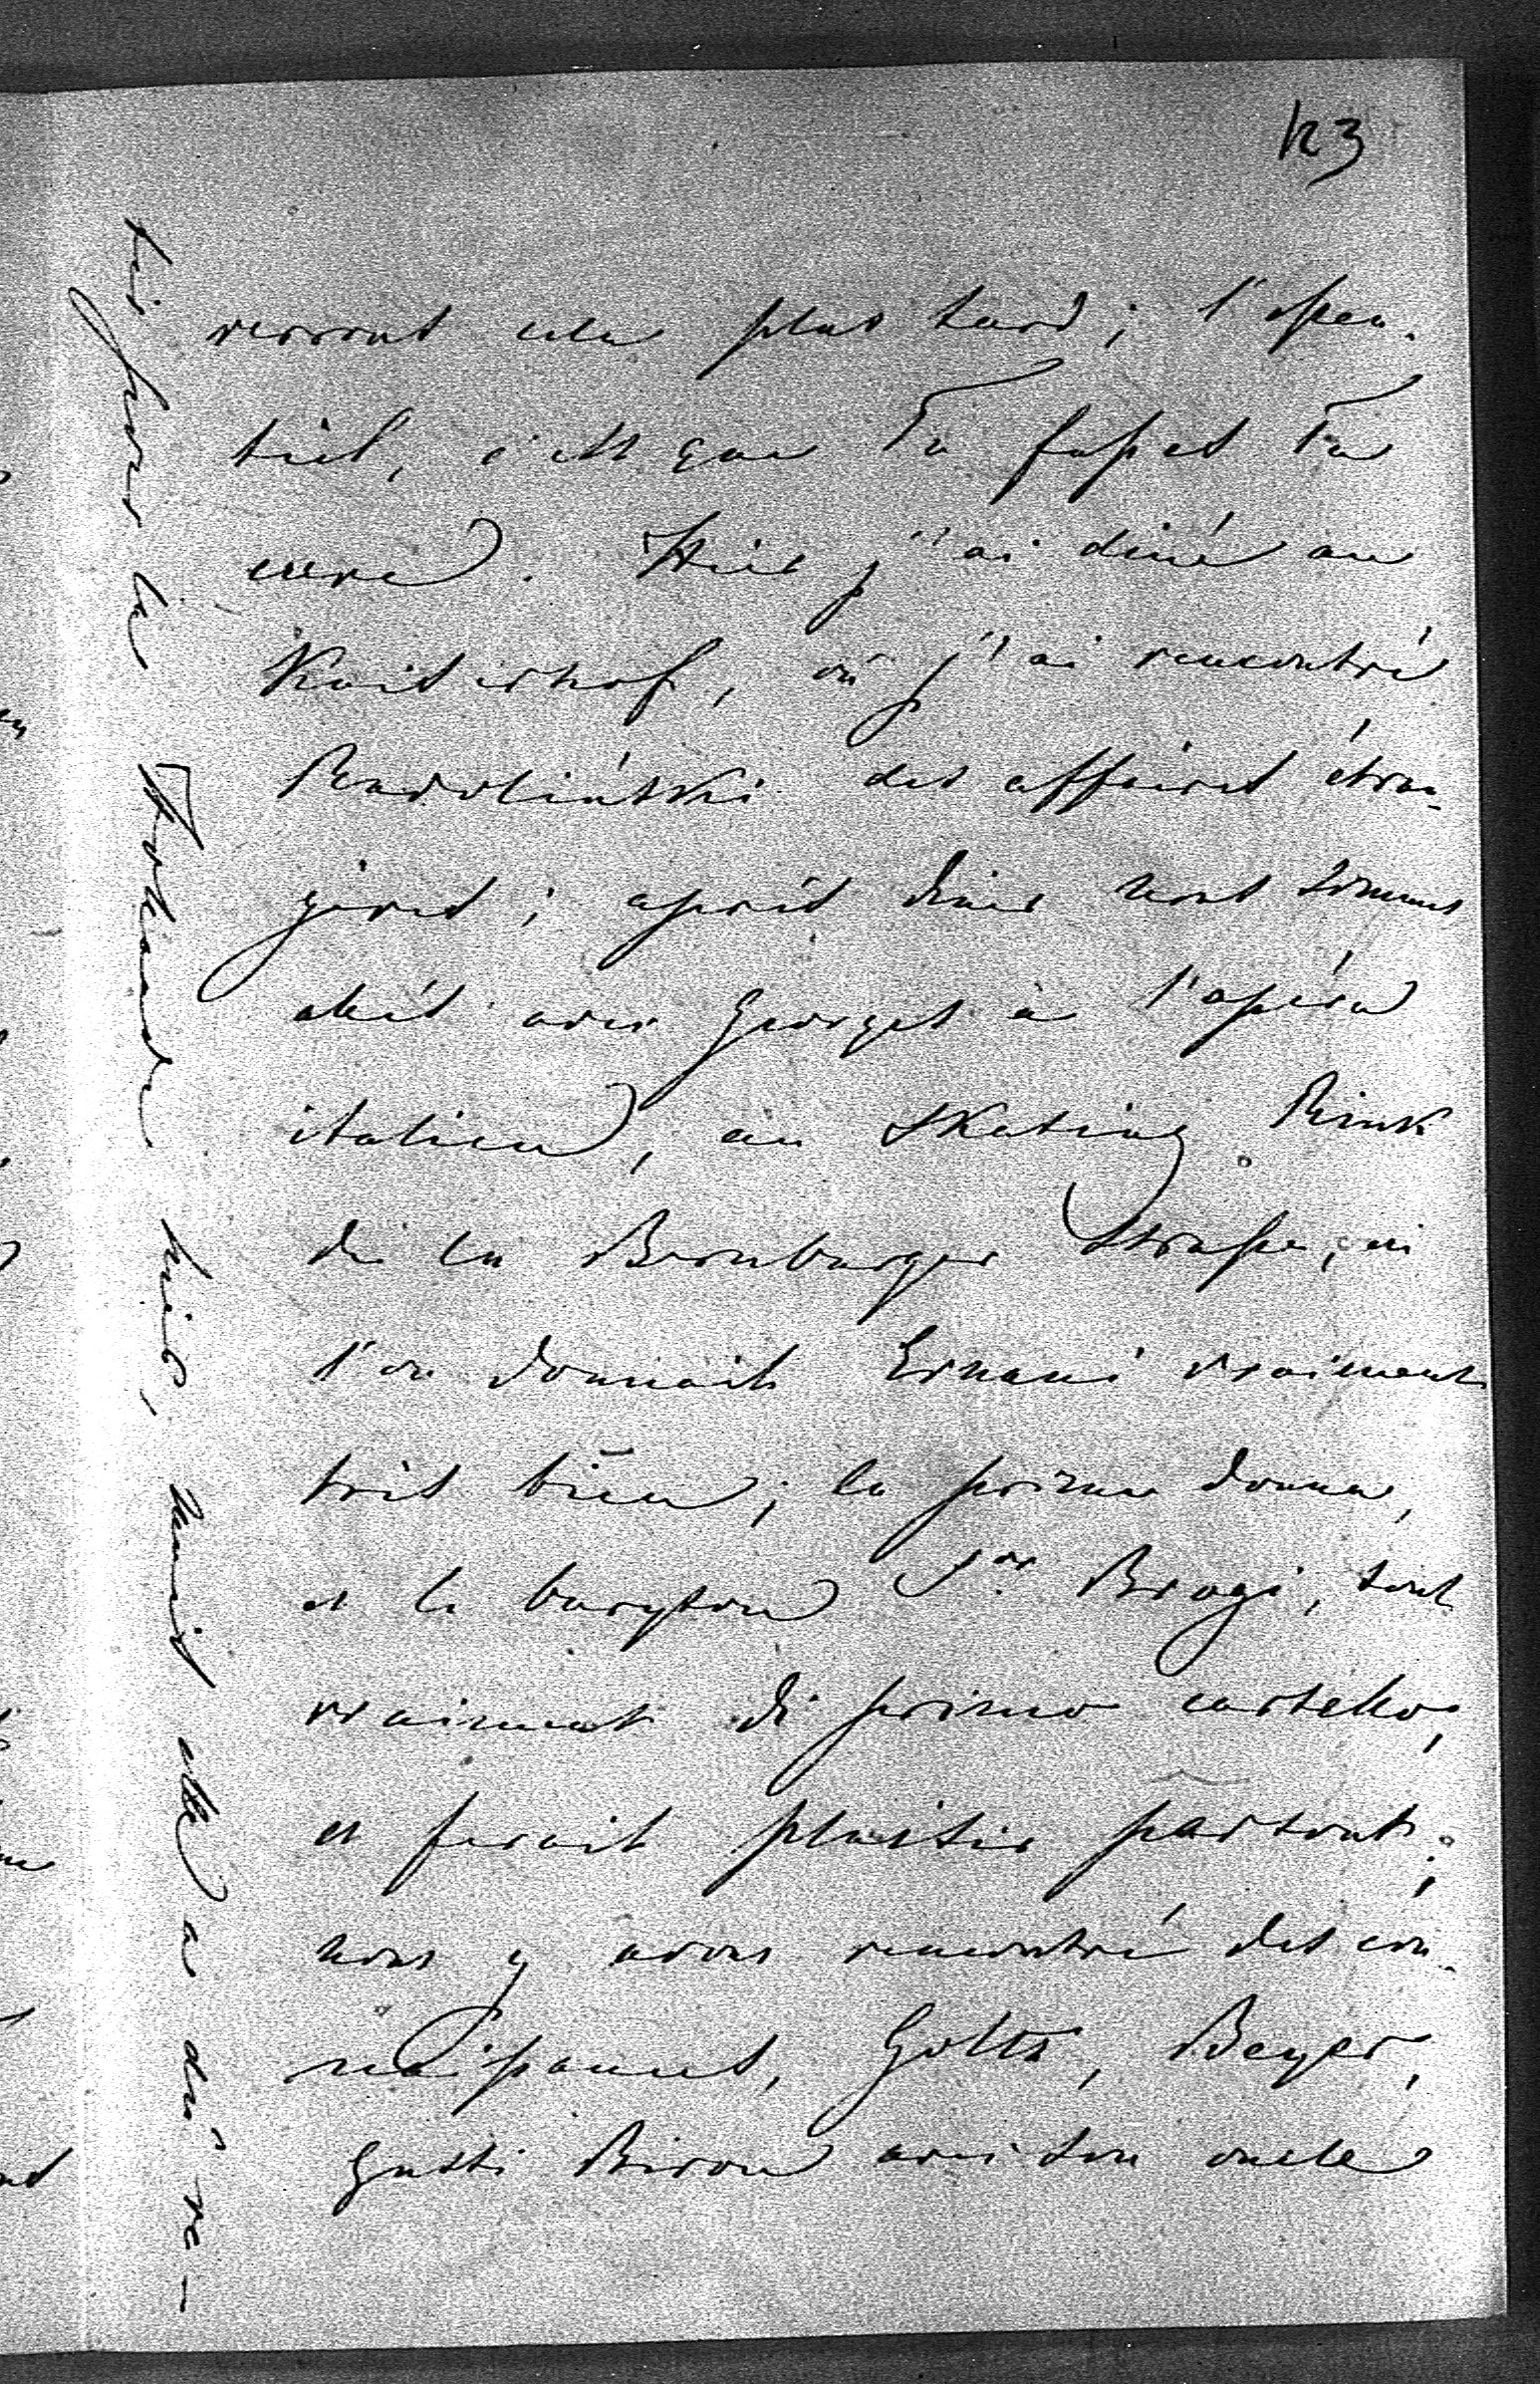 123
verrons cela plus tard; l'essen-
tiel, c'est que Tu fasses Ta
cure. Hier j'ai diné au
Kaiserhof, où j'ai rencontré
Radolinski des affaires étran-
gères; après diner nous sommes
allés avec Georges à l'opéra
italien, au Skating Rink
de la Bernburger Strasse, où
l'on donnait Ernani vraiment
très bien; la prima donna,
et le baryton Sor Brogi, sont
vraiment di primo cartello,
et ferait plaisir partout;
nous y avons rencontré des con-
naissances, Goltz, Beyer,
Gusti Biron avec son oncle
hier, mais elle a dû re-